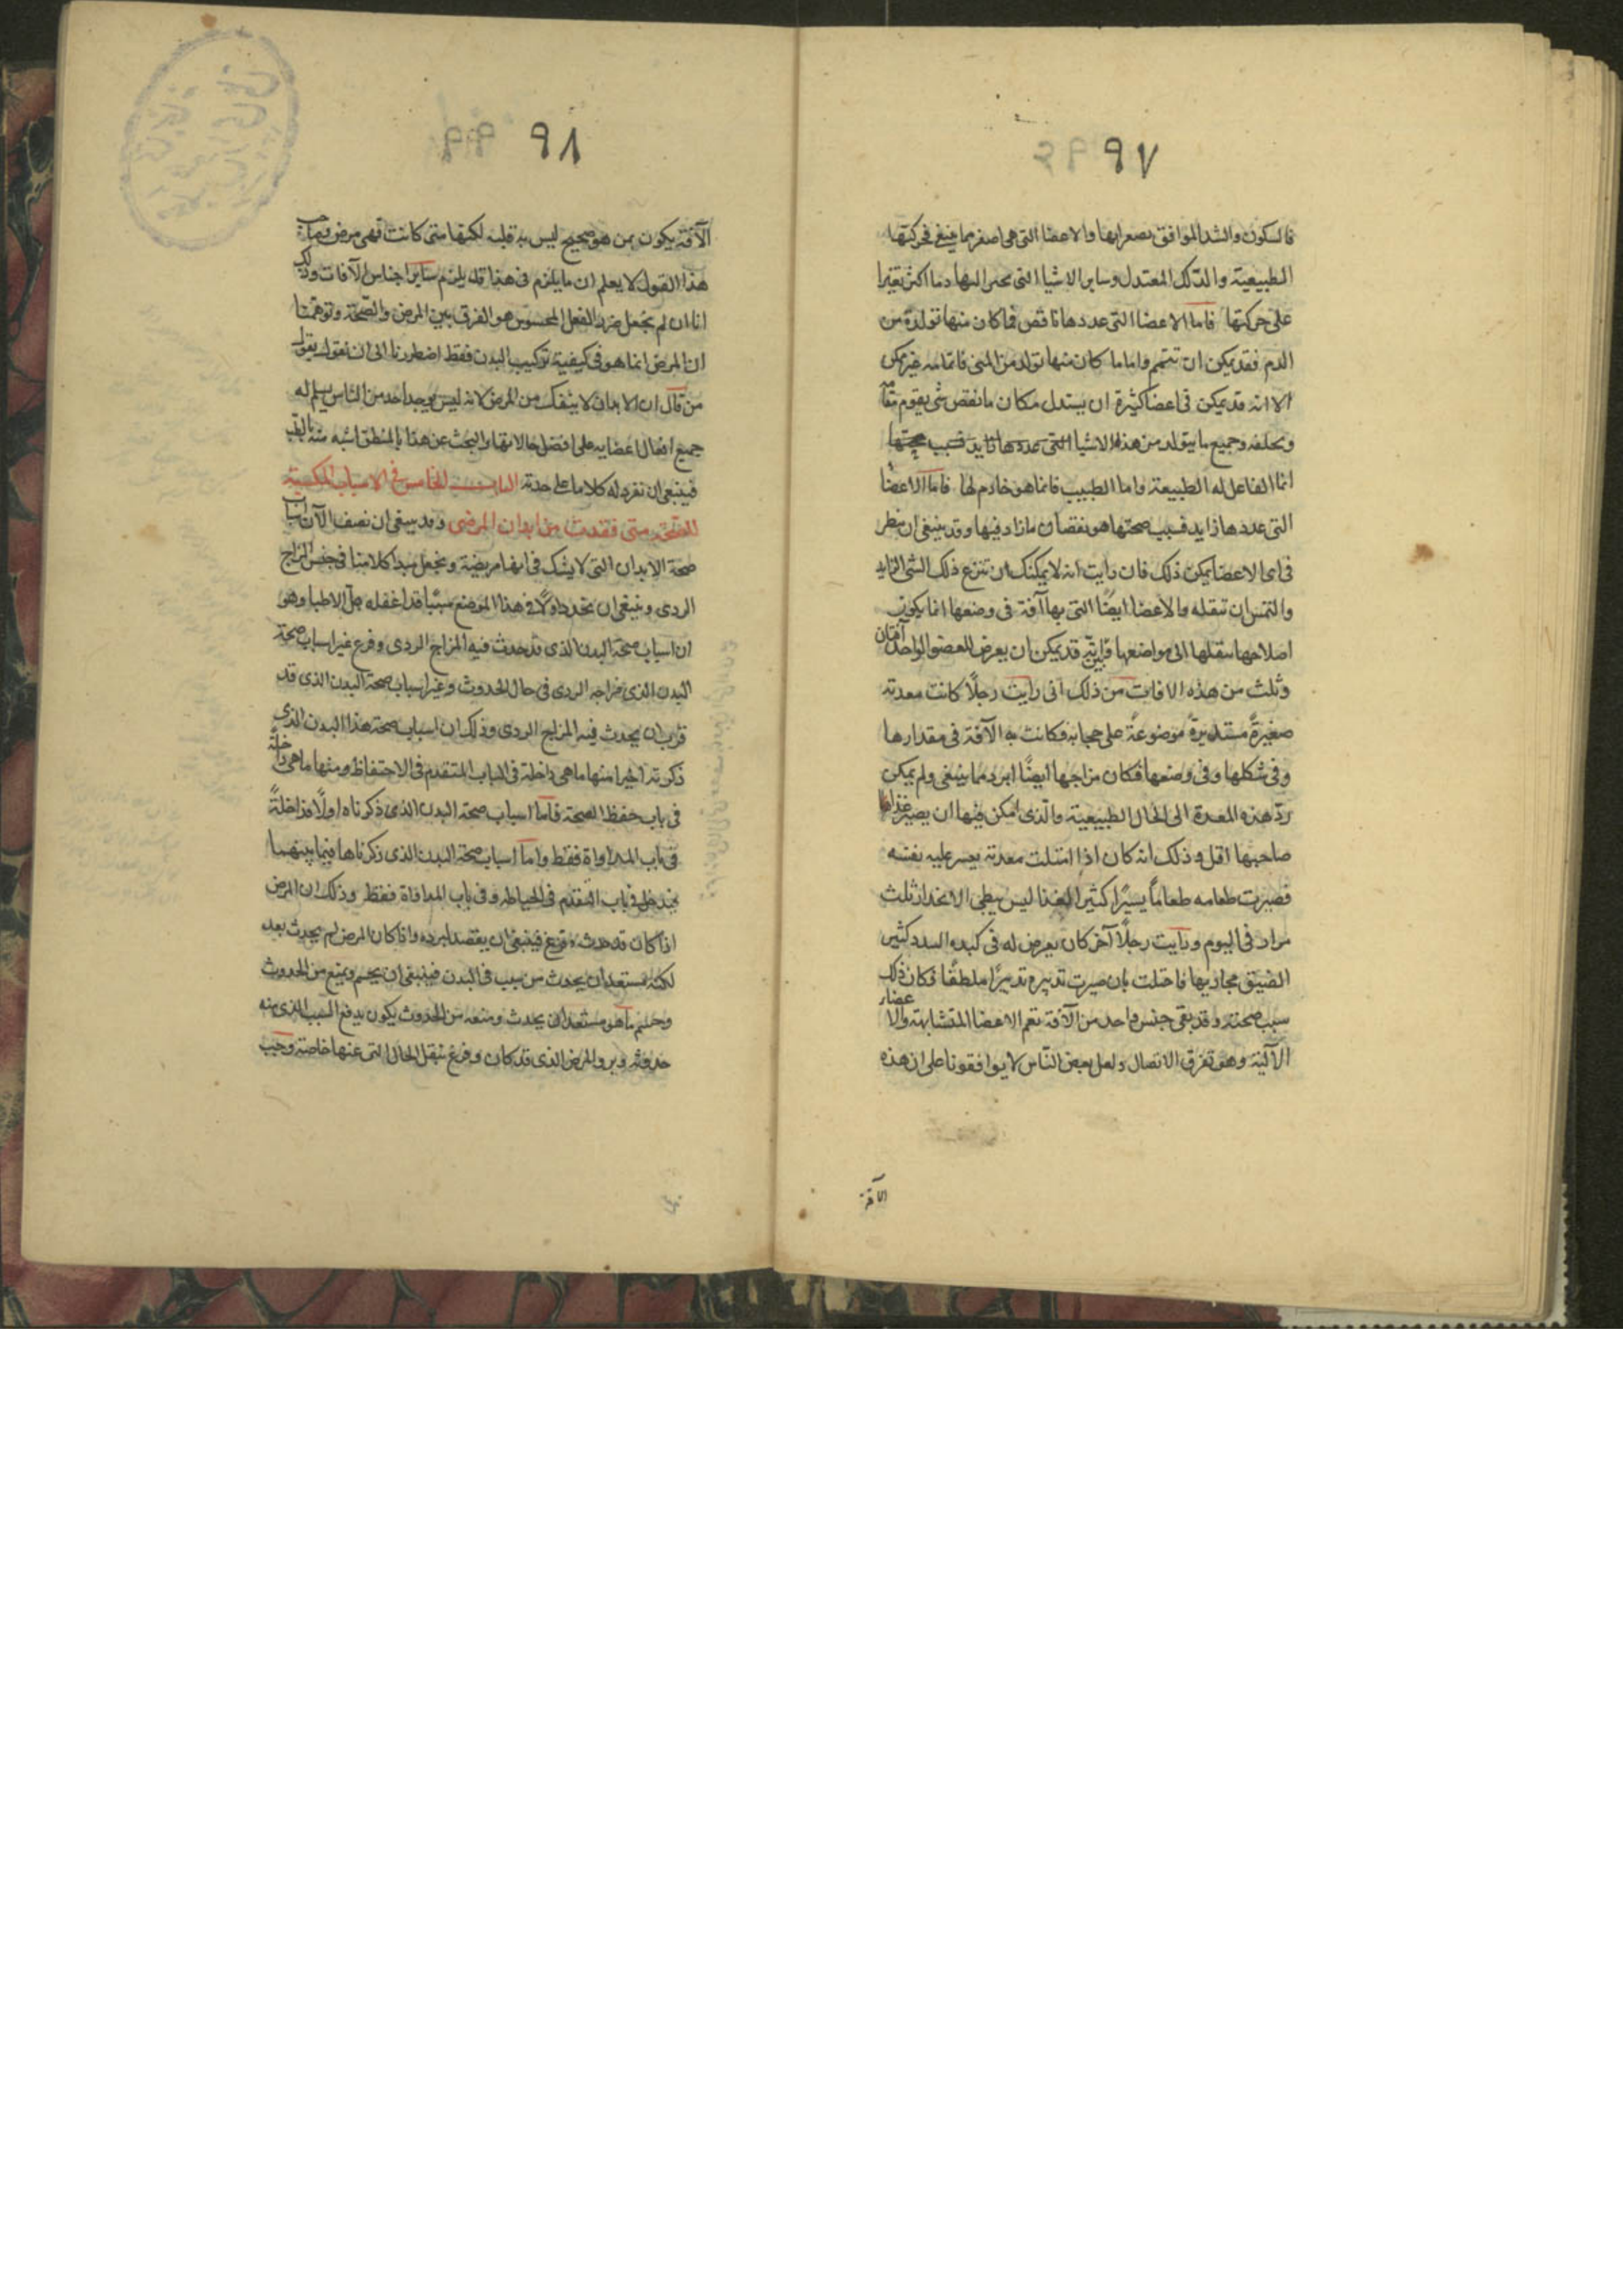 ٩٧
فالسكون والشد الموافق يصغرانها والاعضا التى هى اصغر مما ينبغى فحركتها
الطبيعية والدلك المعتدل وساير الاشيا التى تجرى اليها دما اكثر تغيرا
على حركتها فاما الاعضا التى عددها ناقص فما كان منها تولده من
الدم فقد يمكن ان تتمم واما ما كان منها تولده من المنى فاتمامه غير ممكن
الا انه قد يمكن فى اعضا كثيرة ان يستدل مكان ما نقص شى يقوم مقامه
ويخلفه وجميع ما يتولد من هذه الاشيا التى عددها زايد فسبب صحتها
انما الفاعل له الطبيعة واما الطبيب فانما هو خادم لها فاما الاعضا
التى عددها زايد فسبب صحتها هو نقصان ما زاد فيها وقد ينبغى ان ينظر
فى اى الاعضا يمكن ذلك فان رايت انه لا يمكنك ان تنزع ذلك الشى الزايد
والتمس ان تنقله والاعضا ايضًا التى بها آفة فى وضعها انما يكون
اصلاحها بنقلها الى مواضعها فانه قد يمكن ان يعرض للعضو الواحد آفتان
وثلث من هذه الافات من ذلك انى رايت رجلًا كانت معدته
صغيرةً مستديرةً موضوعةً على حجابه فكانت به الآفة فى مقدارها
وفى شكلها وفى وضعها فكان مزاجها ايضًا ابرد مما ينبغى ولم يمكن
ردّ هذه المعدة الى الحال الطبيعية والذى امكن فيها ان يصير غذا
صاحبها اقل وذلك انه كان اذا امتلت معدته يعسر عليه نفسه
فصيرت طعامه طعامًا يسيرًا كثير الغذا ليس بطى الانحدار ثلث
مرار فى اليوم ورايت رجلًا آخر كان يعرض له فى كبده السدد كثير
الضيق مجاريها فاحتلت بان صيرت تدبيره تدبيرًا ملطفًا فكان ذلك
سبب صحته وقد بقى جنس واحد من الآفة تعم الاعضا المتشابهة والاعضاء
الآلية وهو تفرق الاتصال ولعل بعض الناس لا يوافقونا على ان هذه
الآفة
٩٨
الآفة يكون بمن هو صحيح ليس به قلبه لكنها متى كانت فهى مرض وصاحب
هذا القول لا يعلم ان ما يلزم فى هذا قد يلزم ساير اجناس الآفات وذلك
انا ان لم نجعل ضرر الفعل المحسوس هو الفرق بين المرض والصحة وتوهمنا
ان المرض انما هو فى كيفية تركيب البدن فقط اضطررنا الى ان نقول بقول
من قال ان الابدان لا ينفك من المرض لانه ليس يوجد احد من الناس يسلم له
جميع افعال اعضايه على افضل حالاتها والبحث عن هذا بالمنطق اشبه منه بالطب
فينبغى ان نفرد له كلاما على حدته الباب الخامس فى الاسباب المكسبة
للصحة متى فقدت من ابدان المرضى وقد ينبغى ان نصف الآن اسباب
صحة الابدان التى لا يشك فى انها مريضة ونجعل مبدا كلامنا فى جنس المزاج
الردى وينبغى ان نحدد اولًا فى هذا الموضع شيئًا قد اغفله جل الاطبا وهو
ان اسباب صحة البدن الذى قد حدث فيه المزاج الردى وفرغ غير اسباب صحة
البدن الذى مزاجه الردى فى حال الحدوث وغير اسباب صحة البدن الذى قد
قرب ان يحدث فيه المزاج الردى وذلك ان اسباب صحة هذا البدن الذى
ذكرته اخيرا منها ما هى داخلة فى الباب المتقدم فى الاحتفاظ ومنها ما هى داخلة
فى باب حفظ الصحة فاما اسباب صحة البدن الذى ذكرناه اولًا فداخلةً
فى باب المداواة فقط واما اسباب صحة البدن الذى ذكرناها فيما بينهما
يدخل فى باب التقدم فى الحياطه وفى باب المداواة فقط وذلك ان المرض
اذا كان قد حدث وفرغ فينبغى ان يقصد لبرده واذا كان المرض لم يحدث بعد
لكنه مستعد ان يحدث من سبب فى البدن فينبغى ان يحسم ويمنع من الحدوث
وحسم ما هو مستعد ان يحدث ومنعه من الحدوث يكون بدفع السبب الذى منه
حدوثه وبرو المرض الذى قد كان وفرغ بنقل الحال التى عنها خاصة وجب